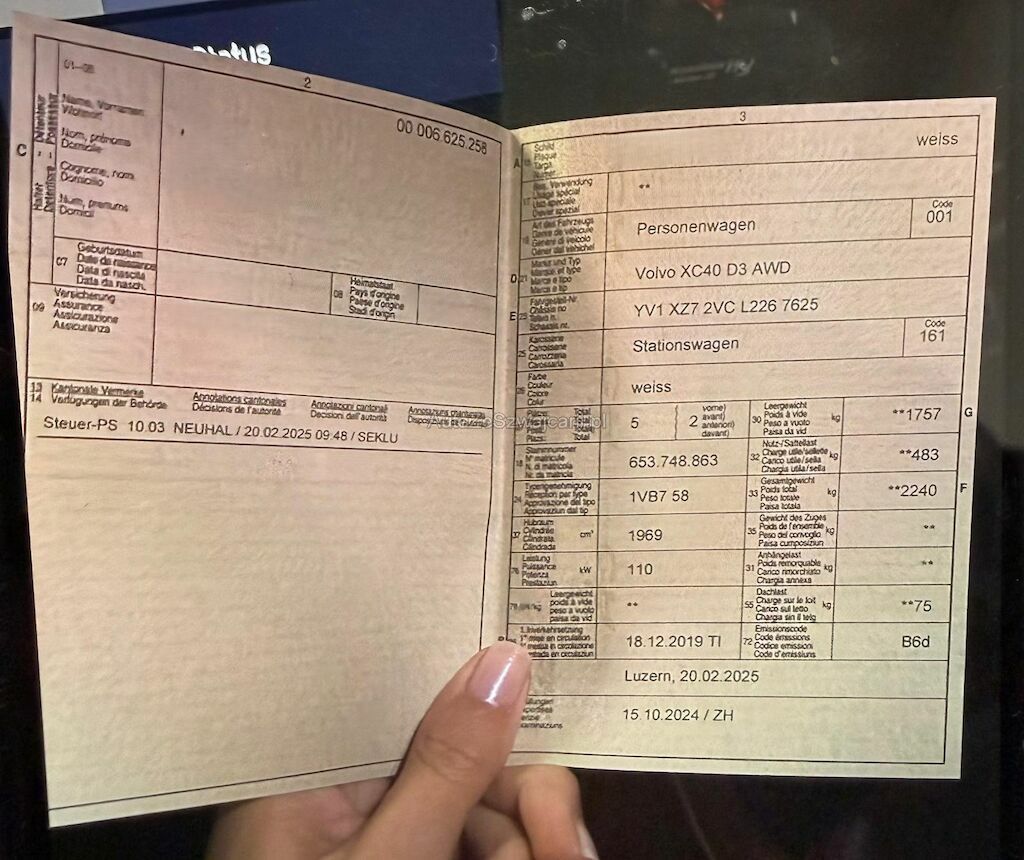 2
00 006.625.258
C
01-06
Name, Vornamen
Wohnort
Nom, prénoms
Domicile
Cognome, nomi
Domicilio
Num, prenums
Domicil
07
Geburtsdatum
Date de naissance
Data di nascita
Data da nasch.
08
Heimatstaat
Pays d'origine
Paese d'origine
Stadi d'origin
09
Versicherung
Assurance
Assicurazione
Assicuranza
13
14
Kantonale Vermerke
Verfügungen der Behörde
Annotations cantonales
Décisions de l'autorité
Annotazioni cantonali
Decisioni dell'autorità
Annotaziuns chantunalas
Steuer-PS 10.03 NEUHAL / 20.02.2025 09:48 / SEKLU
3
A
Schild
Plaque
Targa
weiss
**
Art des Fahrzeugs
Personenwagen
Code
001
D
Marke und Typ
Marque et type
Marca e tipo
Marca e tip
Volvo XC40 D3 AWD
E
Fahrgestell-Nr.
YV1 XZ7 2VC L226 7625
25
Karosserie
Carrosserie
Carrozzeria
Carossaria
Stationswagen
Code
161
Farbe
Couleur
Colore
Colur
weiss
Total
Total
Total
Total
5
2
vorne)
avant)
anteriori)
davant)
30
Leergewicht
Poids à vide
Peso a vuoto
Paisa da vid
kg
**1757
G
Stammnummer
N° matricule
N. di matricola
Nr. da matricla
653.748.863
32
Nutz-/Sattellast
Charge utile/sellette
Carico utile/sella
Chargia utila/sella
kg
**483
Typengenehmigung
Réception par type
Approvazione del tipo
Approvaziun dal tip
1VB7 58
33
Gesamtgewicht
Poids total
Peso totale
Paisa totala
kg
**2240
F
37
Hubraum
Cylindrée
Cilindrata
Cilindrada
cm³
1969
35
Gewicht des Zuges
Poids de l'ensemble
Peso del convoglio
Paisa cumposiziun
kg
**
76
Leistung
Puissance
Potenza
Prestaziun
kW
110
31
Anhängelast
Poids remorquable
Carico rimorchiato
Chargia annexa
kg
**
Leergewicht
poids à vide
peso a vuoto
paisa da vid
**
55
Dachlast
Charge sur le toit
Carico sul tetto
Chargia sin il tetg
kg
**75
1. Inverkehrsetzung
18.12.2019 TI
72
Emissionscode
Code émissions
Codice emissioni
Code d'emissiuns
B6d
Luzern, 20.02.2025
15.10.2024 / ZH